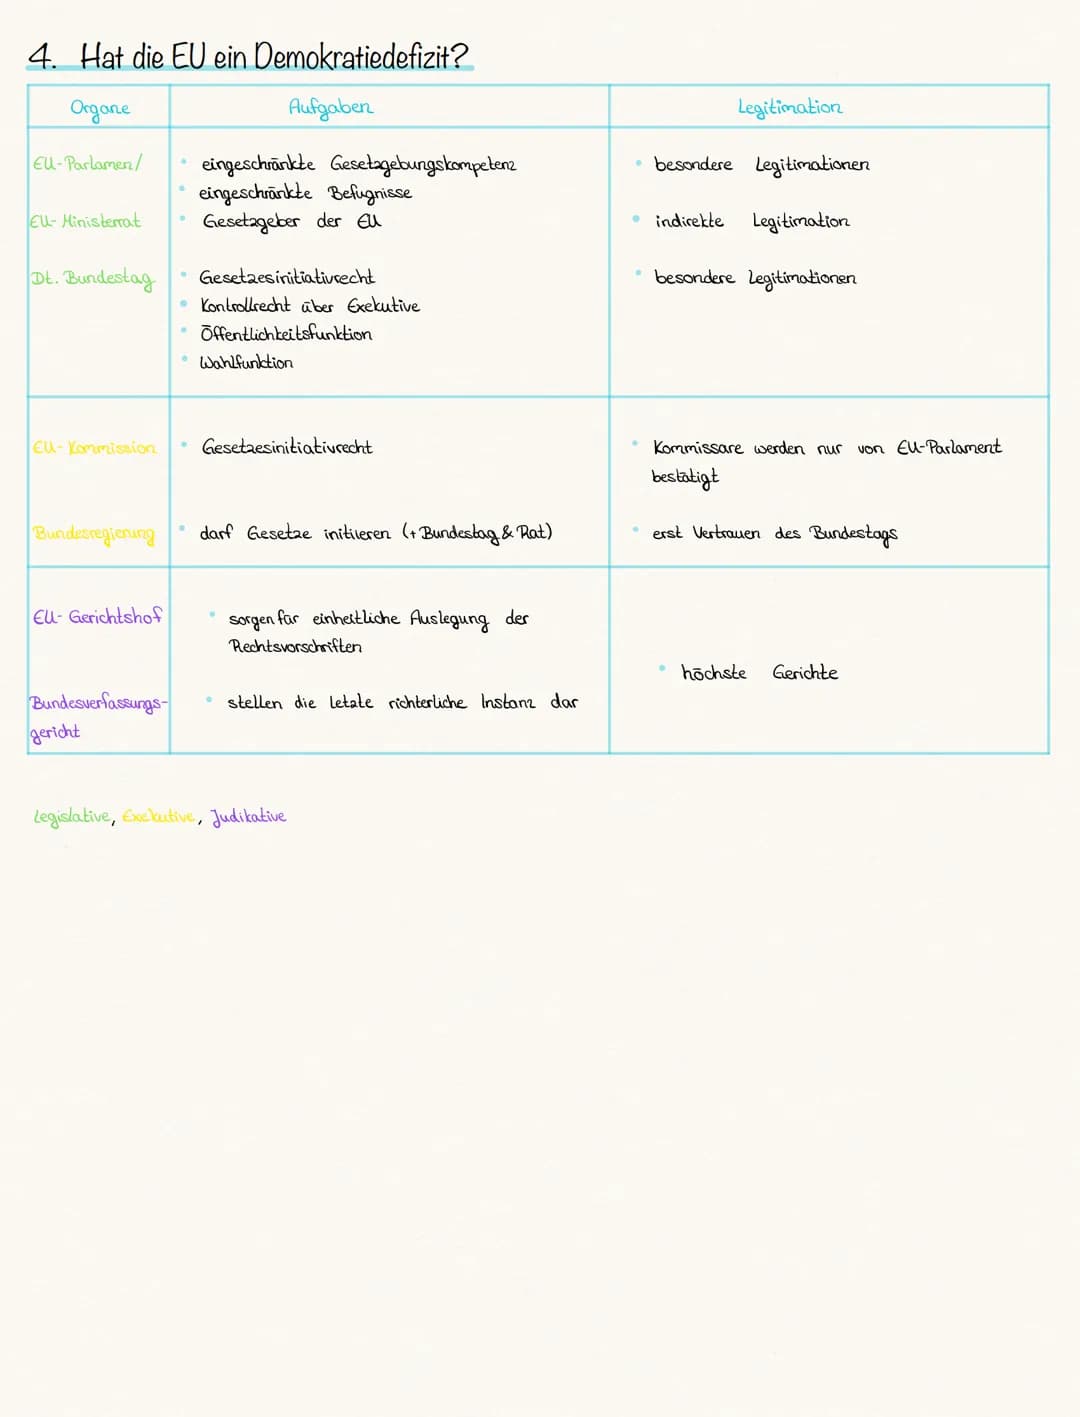 4. Hat die EU ein Demokratiedefizit?
Organe Aufgaben Legitimation
EU-Parlamen/ • eingeschränkte Gesetzgebungskompetenz • besondere Legitimationen
• eingeschränkte Befugnisse
EU-Ministerrat • Gesetzgeber der EU • indirekte Legitimation
Dt. Bundestag • Gesetzesinitiativrecht • besondere Legitimationen
• Kontrollrecht über Exekutive
• Öffentlichkeitsfunktion
• Wahlfunktion
EU-Kommission • Gesetzesinitiativrecht • Kommissare werden nur von EU-Parlament
bestätigt
Bundesregierung • darf Gesetze initiieren (+ Bundestag & Rat) • erst Vertrauen des Bundestags
EU-Gerichtshof • sorgen für einheitliche Auslegung der
Rechtsvorschriften
• höchste Gerichte
Bundesverfassungs- • stellen die letzte richterliche Instanz dar
gericht
Legislative, Exekutive, Judikative